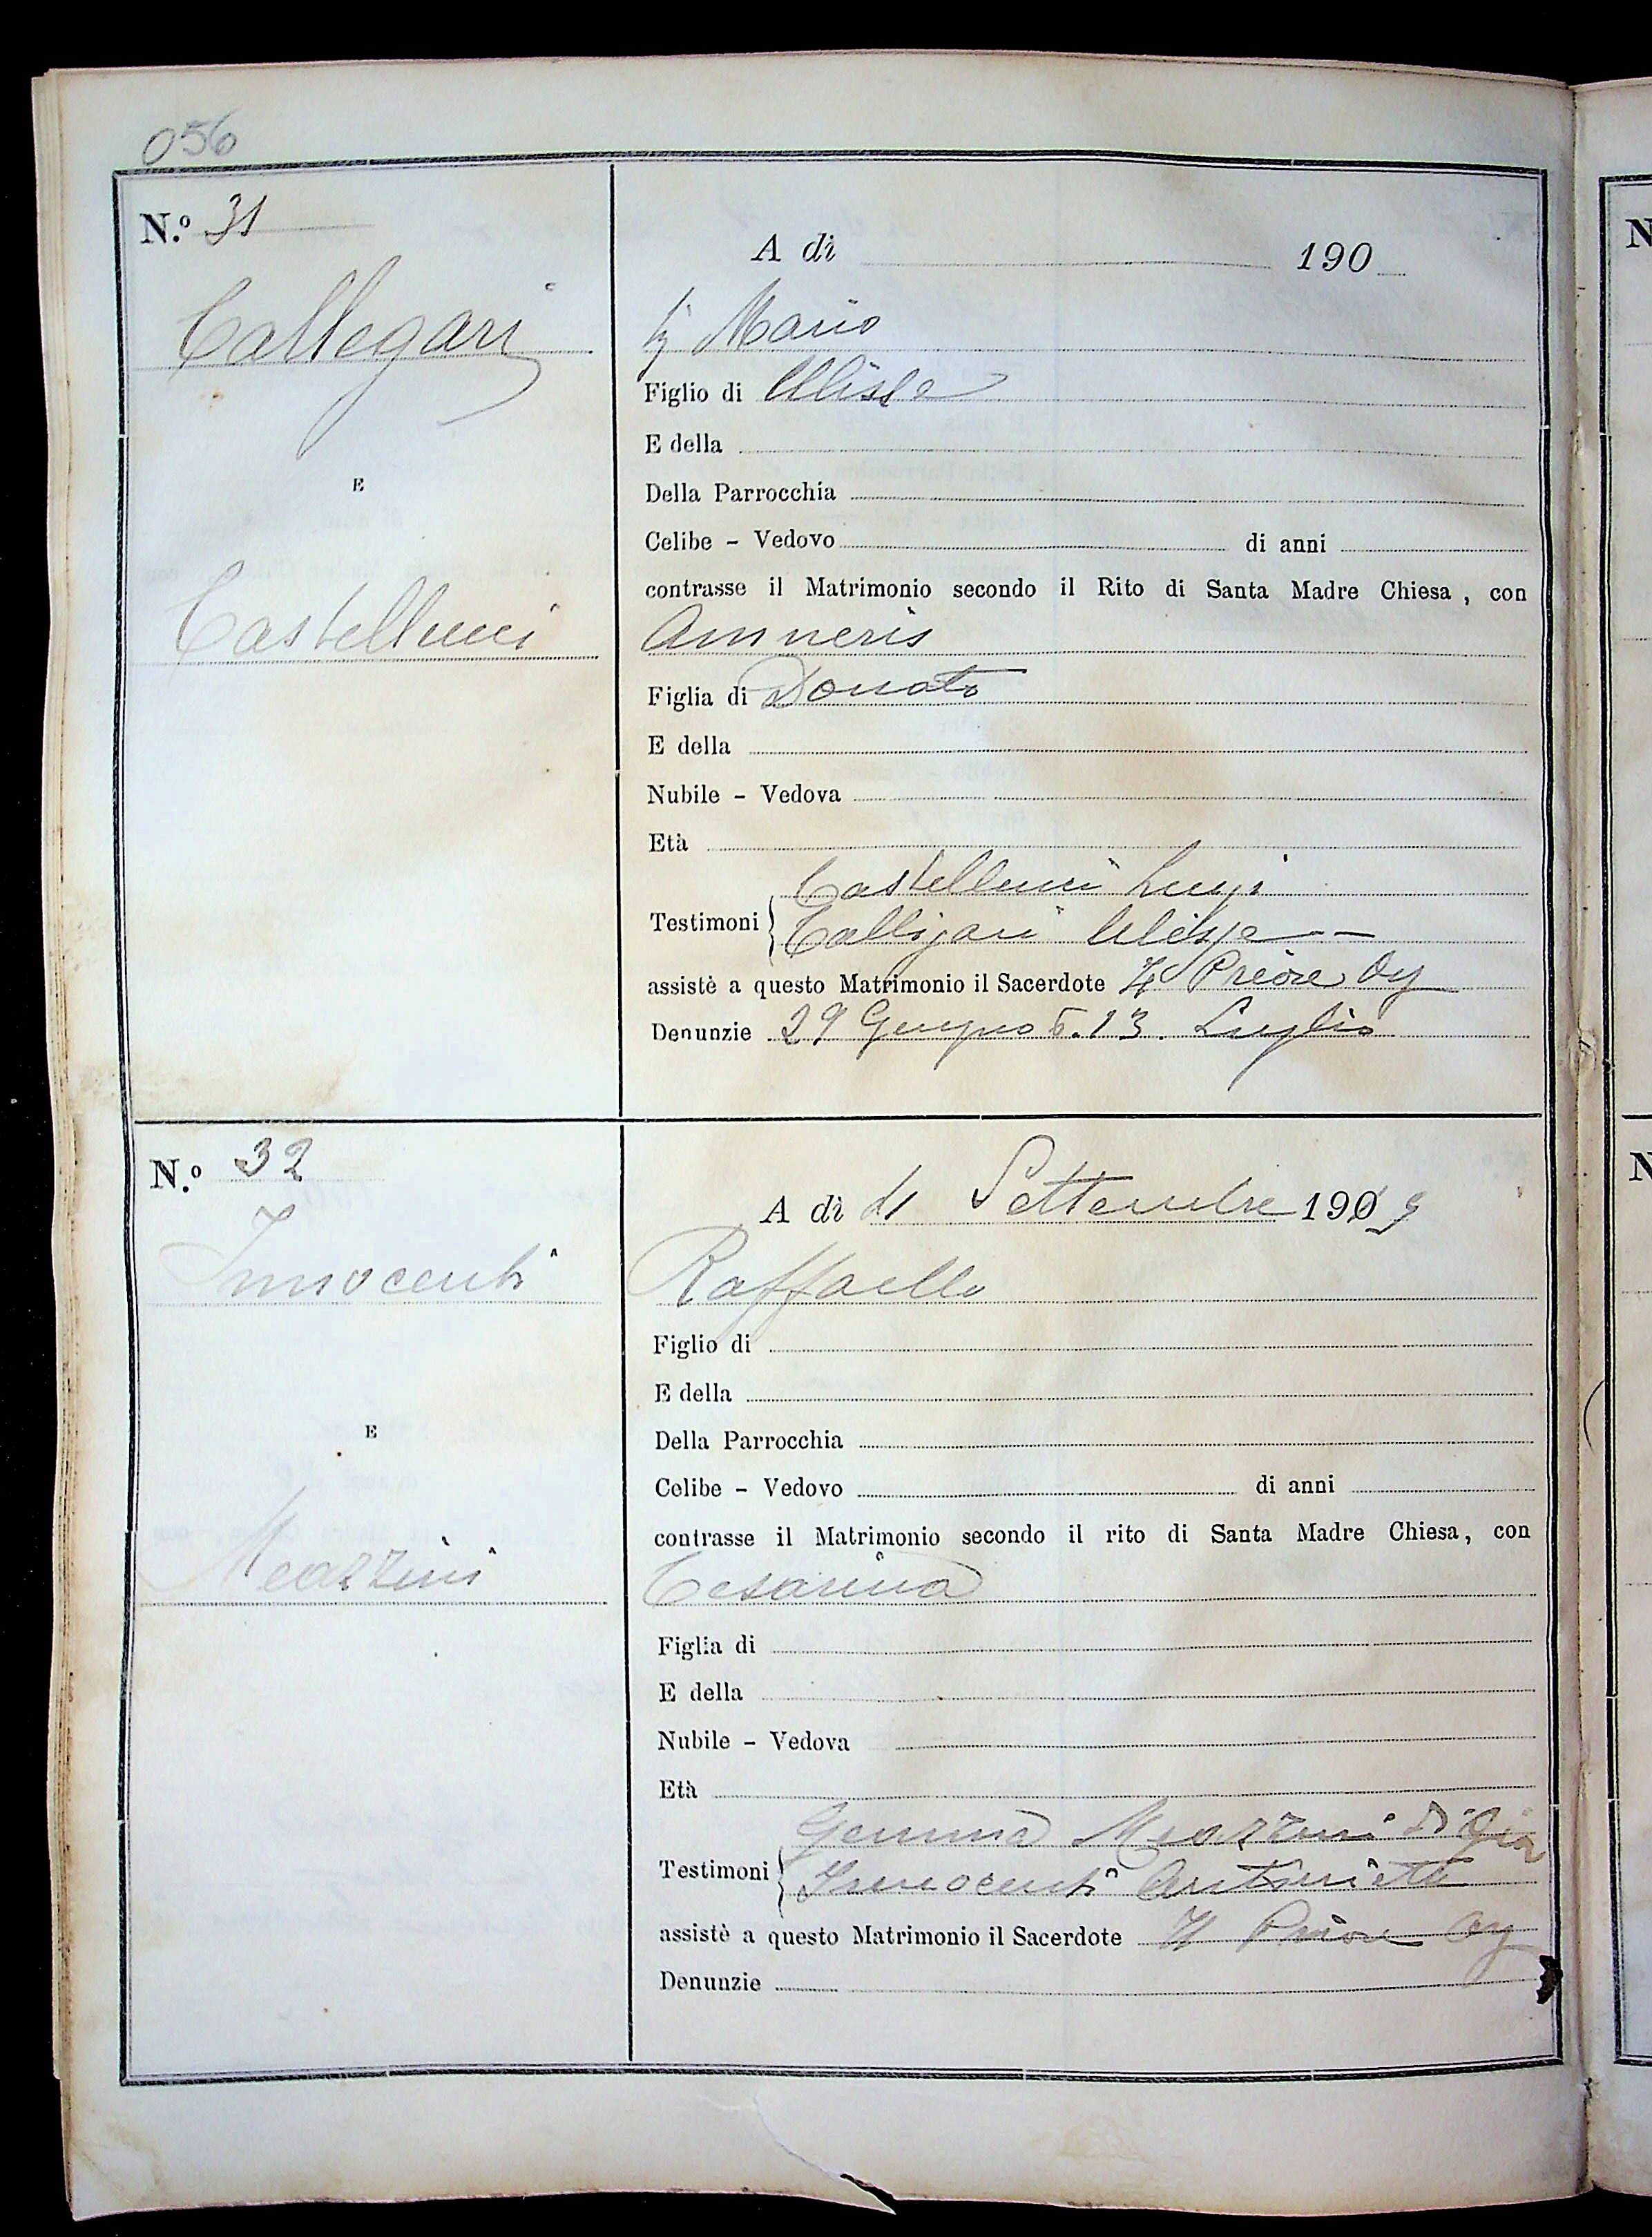 056
N.º 31
A dì 190
Callegari
Mario
Figlio di Ulisse
E della
Della Parrocchia
Celibe - Vedovo di anni
E
contrasse il Matrimonio secondo il Rito di Santa Madre Chiesa, con
Castellucci
Amneris
Figlia di Donato
E della
Nubile - Vedova
Età
Castellucci Luigi
Testimoni
Calligari Ulisse
assistè a questo Matrimonio il Sacerdote Il Priore
Denunzie 29 Giugno 6. 13. Luglio
N.º 32
A dì Settembre 1909
Innocenti
Raffaello
Figlio di
E della
Della Parrocchia
Celibe - Vedovo di anni
E
contrasse il Matrimonio secondo il rito di Santa Madre Chiesa, con
Meazzini
Cesarina
Figlia di
E della
Nubile - Vedova
Età
Gemma Meazzini di
Testimoni
Innocenti Antonietta
assistè a questo Matrimonio il Sacerdote Il Priore
Denunzie
N
N